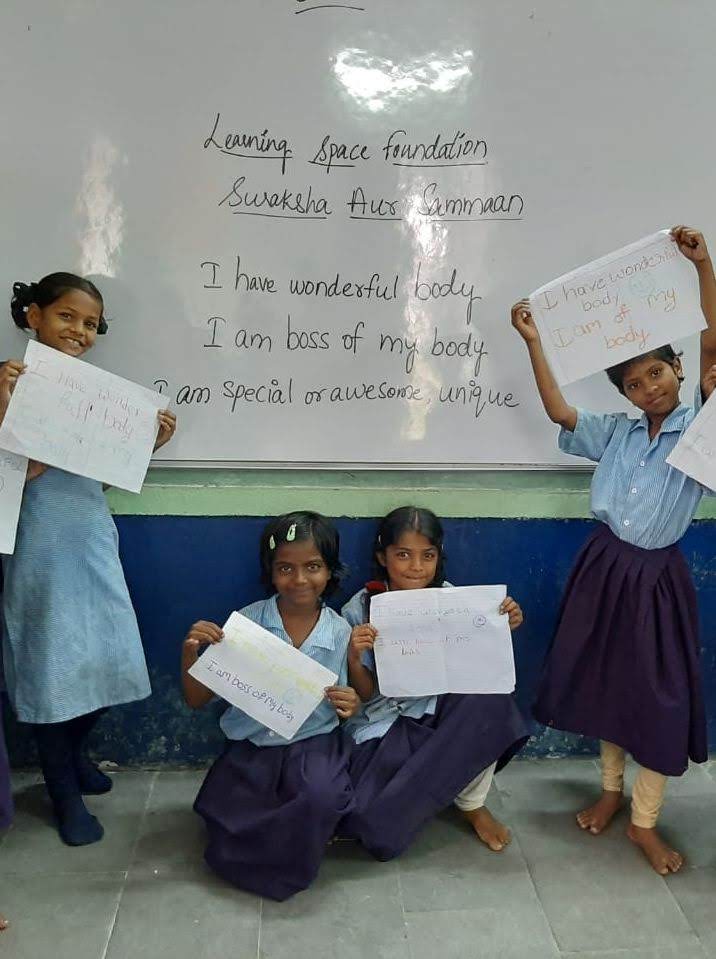 Learning Space foundation
Suraksha Aur Sammaan
I have wonderful body
I am boss of my body
I am special or awesome, unique
I have wonder
full body
I have wonderful
body
I am of my
body
I am boss of my body
I have
I am